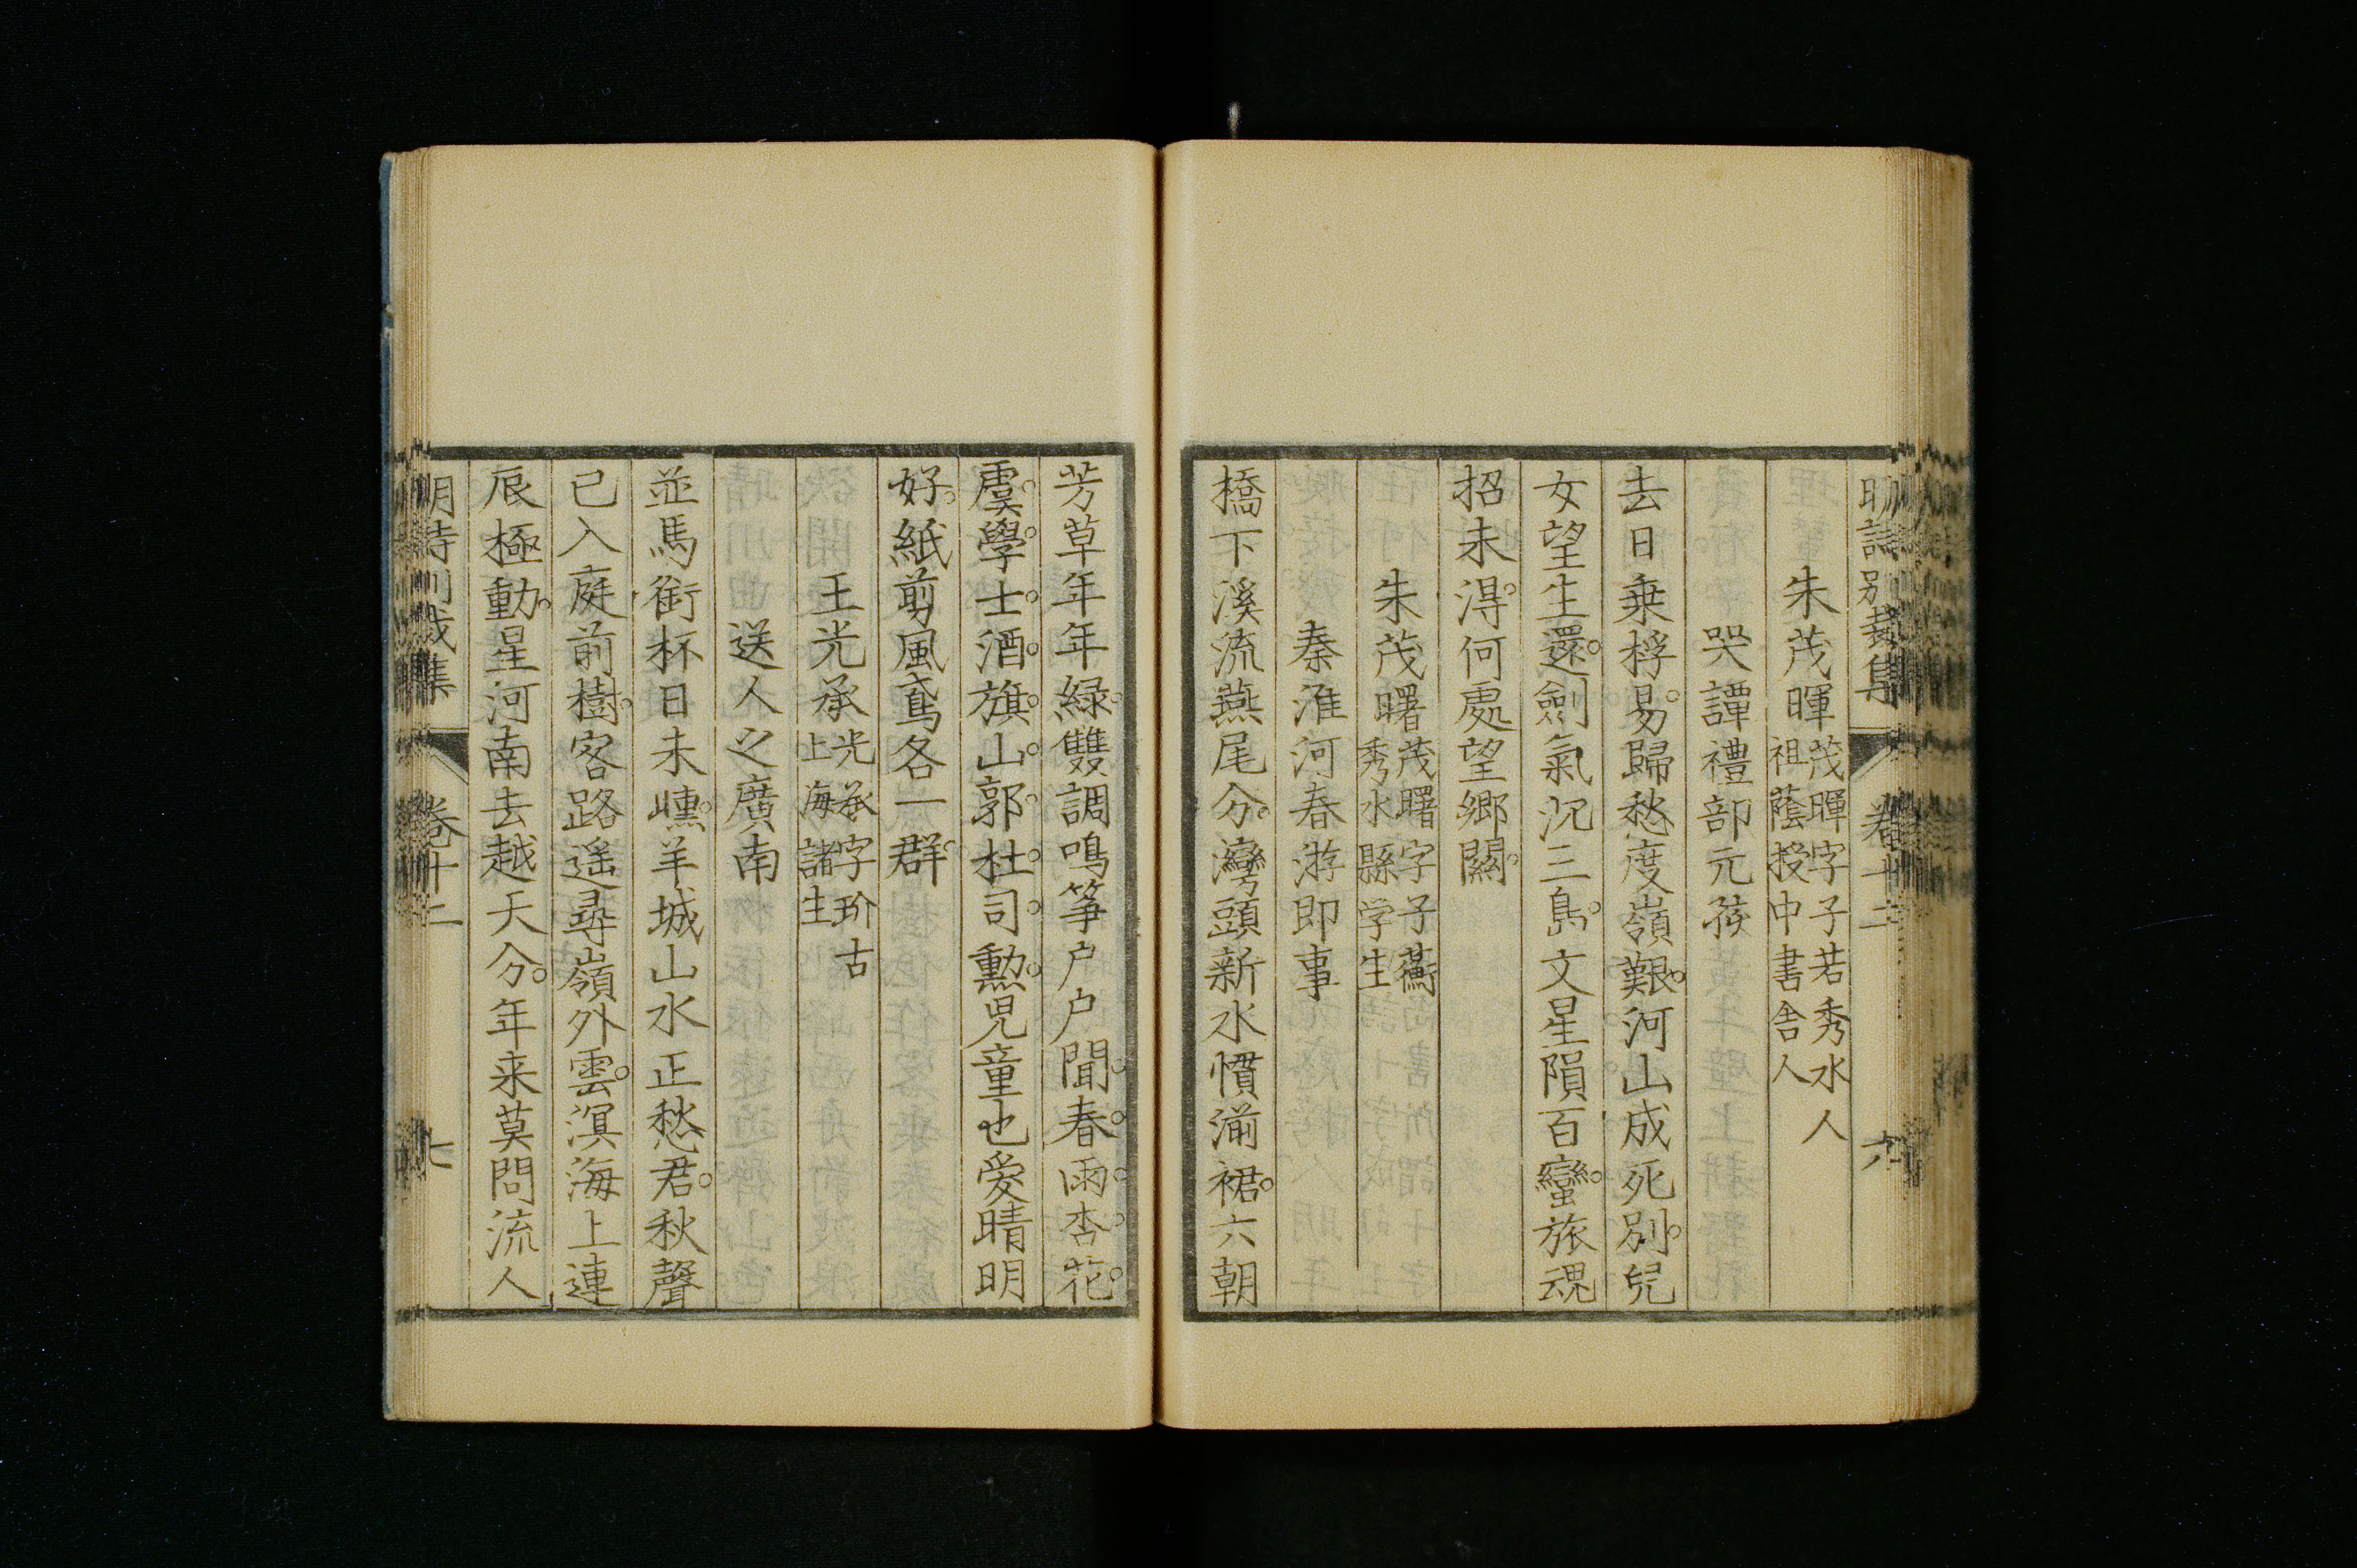 明詩別裁集 卷十二 六
朱茂暉 茂暉字子若秀水人祖蔭授中書舍人
哭譚禮部元孩
去日乗桴易歸愁度嶺艱河山成死別兒
女望生還劍氣沉三島文星隕百蠻旅魂
招未淂何處望鄉關
朱茂曙 茂曙字子蘅秀水縣学生
秦淮河春游即事
橋下溪流燕尾分灣頭新水慣湔裙六朝
芳草年年緑雙調鳴筝户户聞春雨杏花
虞學士酒旗山郭杜司勲児童也愛晴明
好紙剪風鳶各一群
王光承 光承字玠古上海諸生
送人之廣南
並馬銜杯日未曛羊城山水正愁君秋聲
已入庭前樹客路遥尋嶺外雲溟海上連
辰極動星河南去越天分年来莫問流人
明詩別裁集 卷十二 七